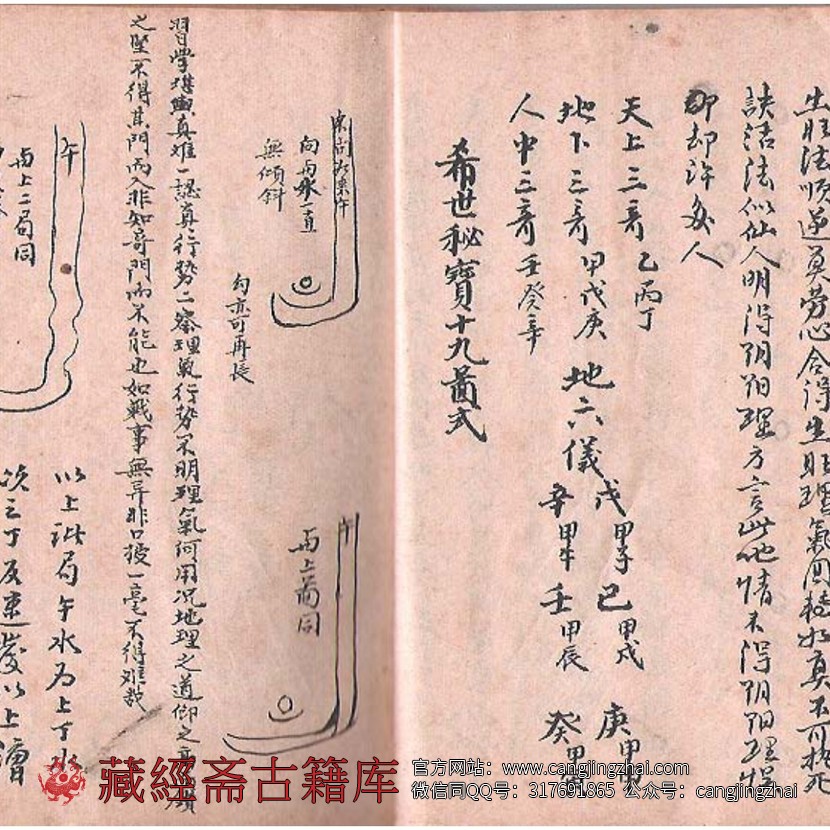 生旺法順逆莫勞心合得生旺理氣同
訣活法似仙人明得阴阳理方言此地情不得阴阳理
却却許多人
天上三奇乙丙丁
地下三奇甲戊庚
人中三奇壬癸辛
地六儀
戊甲子己甲戌庚甲申
辛甲午壬甲辰癸甲寅
希世秘寶十九啚式
午
向丙水一直
無傾斜
勾亦可再長
午
丙上啚同
習學堪輿真難一認真行势二察理氣行势不明理氣何用况地理之道仰之
之堅不得其門而入非知奇門而不能也如戰事無异非口授一毫不得難教
午
丙上二局同
以上此局午水为上丁水
次之丁及
以上
藏經斋古籍库
官方网站：www.cangjingzhai.com
微信同QQ号：317691865 公众号：cangjingzhai